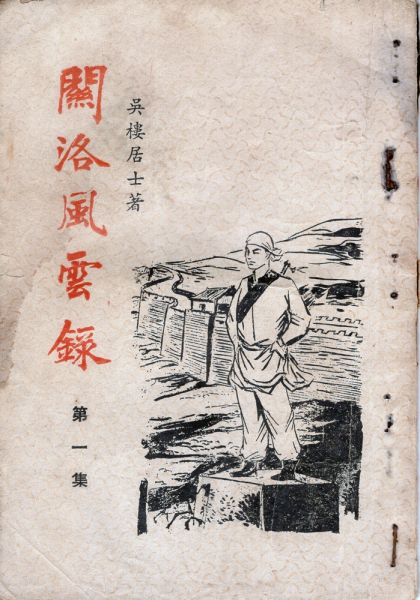 吳樓居士著
關洛風雲錄
第一集